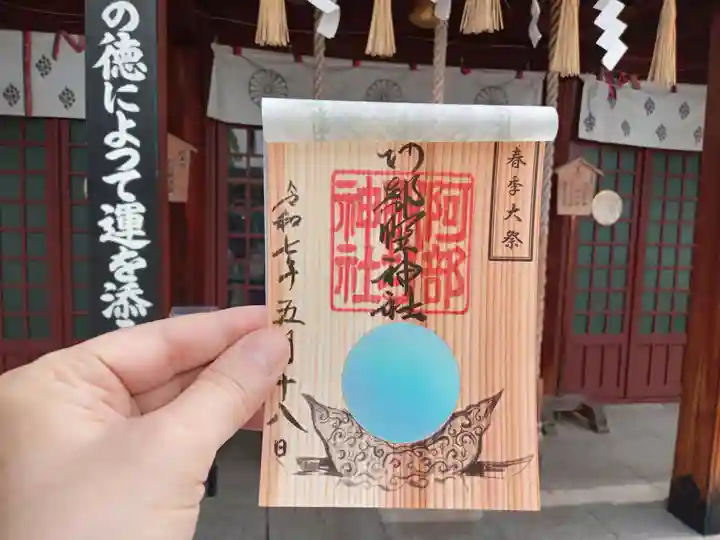 春季大祭
阿部野神社
阿部野神社
令和七年五月十八日
の徳によって運を添